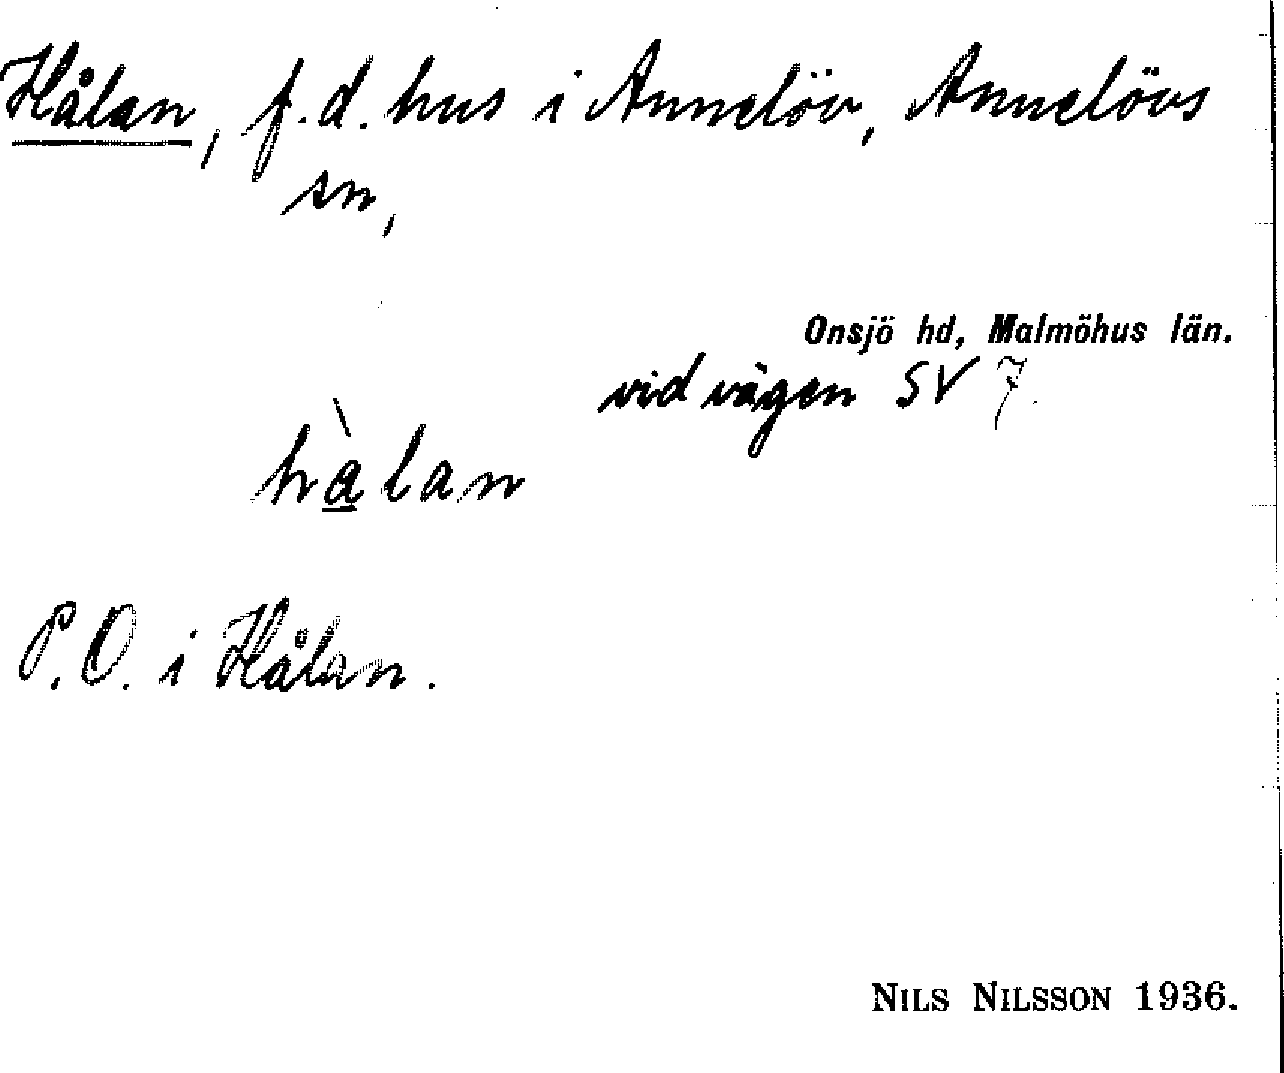 Hålan, f.d. hus i Annelöv, Annelövs
sn,
Onsjö hd, Malmöhus län.
vid vägen SV 7.
hàlan
P.O. i Hålan.
NILS NILSSON 1936.